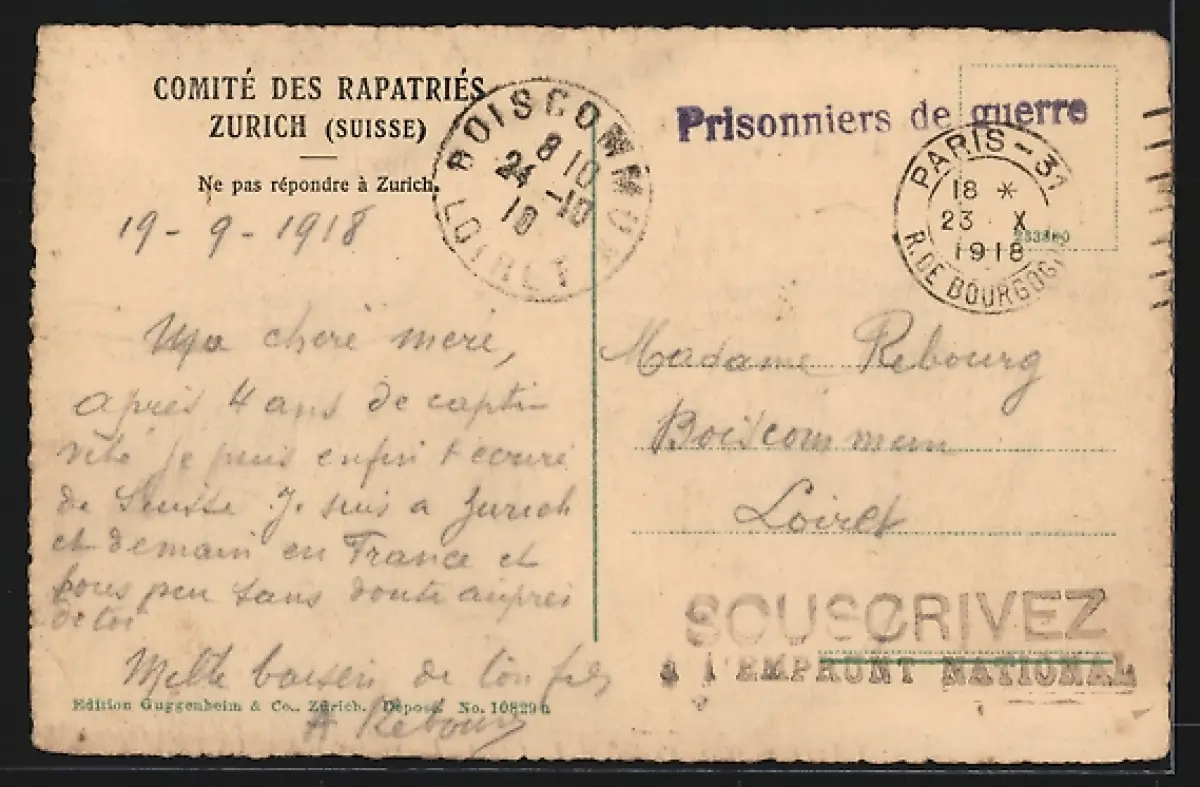 COMITÉ DES RAPATRIÉS
ZURICH (SUISSE)
Ne pas répondre à Zurich.
19 - 9 - 1918
Ma cheré meré,
après 4 ans de capti
vité je puis enfin
de Suisse. Je suis a Zurich
et demain en France et
sous peu sans doute aupres
de toi
Mille baisers de ton fils
A Rebourg
Edition Guggenheim & Co., Zürich. Déposé. No. 10829
BOISCOMMUN
8 10
24 -10
10
LOIRET
Prisonniers de guerre
PARIS - 31
18 *
23 X
1918
R. DE BOURGOG
Madame Rebourg
Boiscommun
Loiret
SOUSCRIVEZ
à l'EMPRUNT NATIONAL